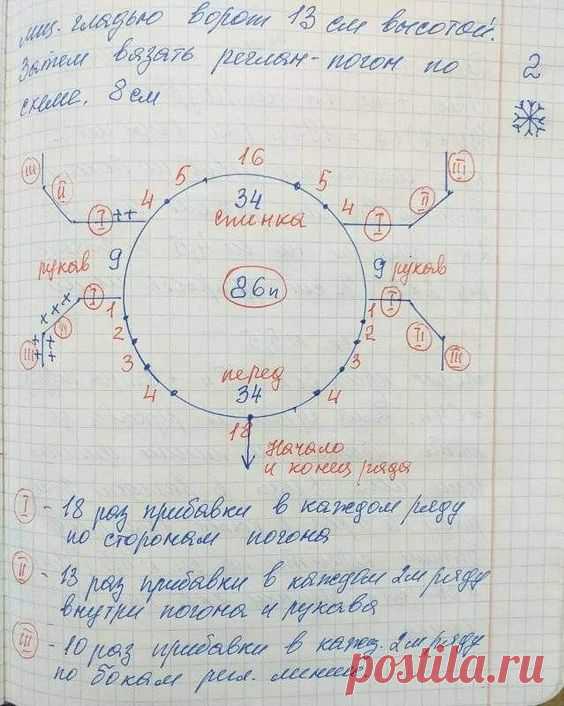 лиц. гладью ворот 13 см высотой.
Затем вязать реглан-погон по
схеме. 8 см
2
III II 5 16 5 III
4 34 4 II
I ++ спинка I
рукав 9 86п 9 рукав
I 1 1 I
xxx II 2 2 II
III 3 перед 3 III
4 34 4
18
Начало
и конец ряда
I - 18 раз прибавки в каждом ряду
по сторонам погона
II - 13 раз прибавки в каждом 2м ряду
внутри погона и рукава
III - 10 раз прибавки в кажд. 2м ряду
по бокам регл. линий
postila.ru